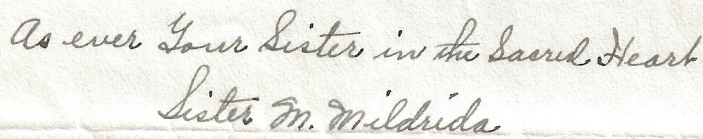 As ever Your Sister in the Sacred Heart
Sister M. Mildrida